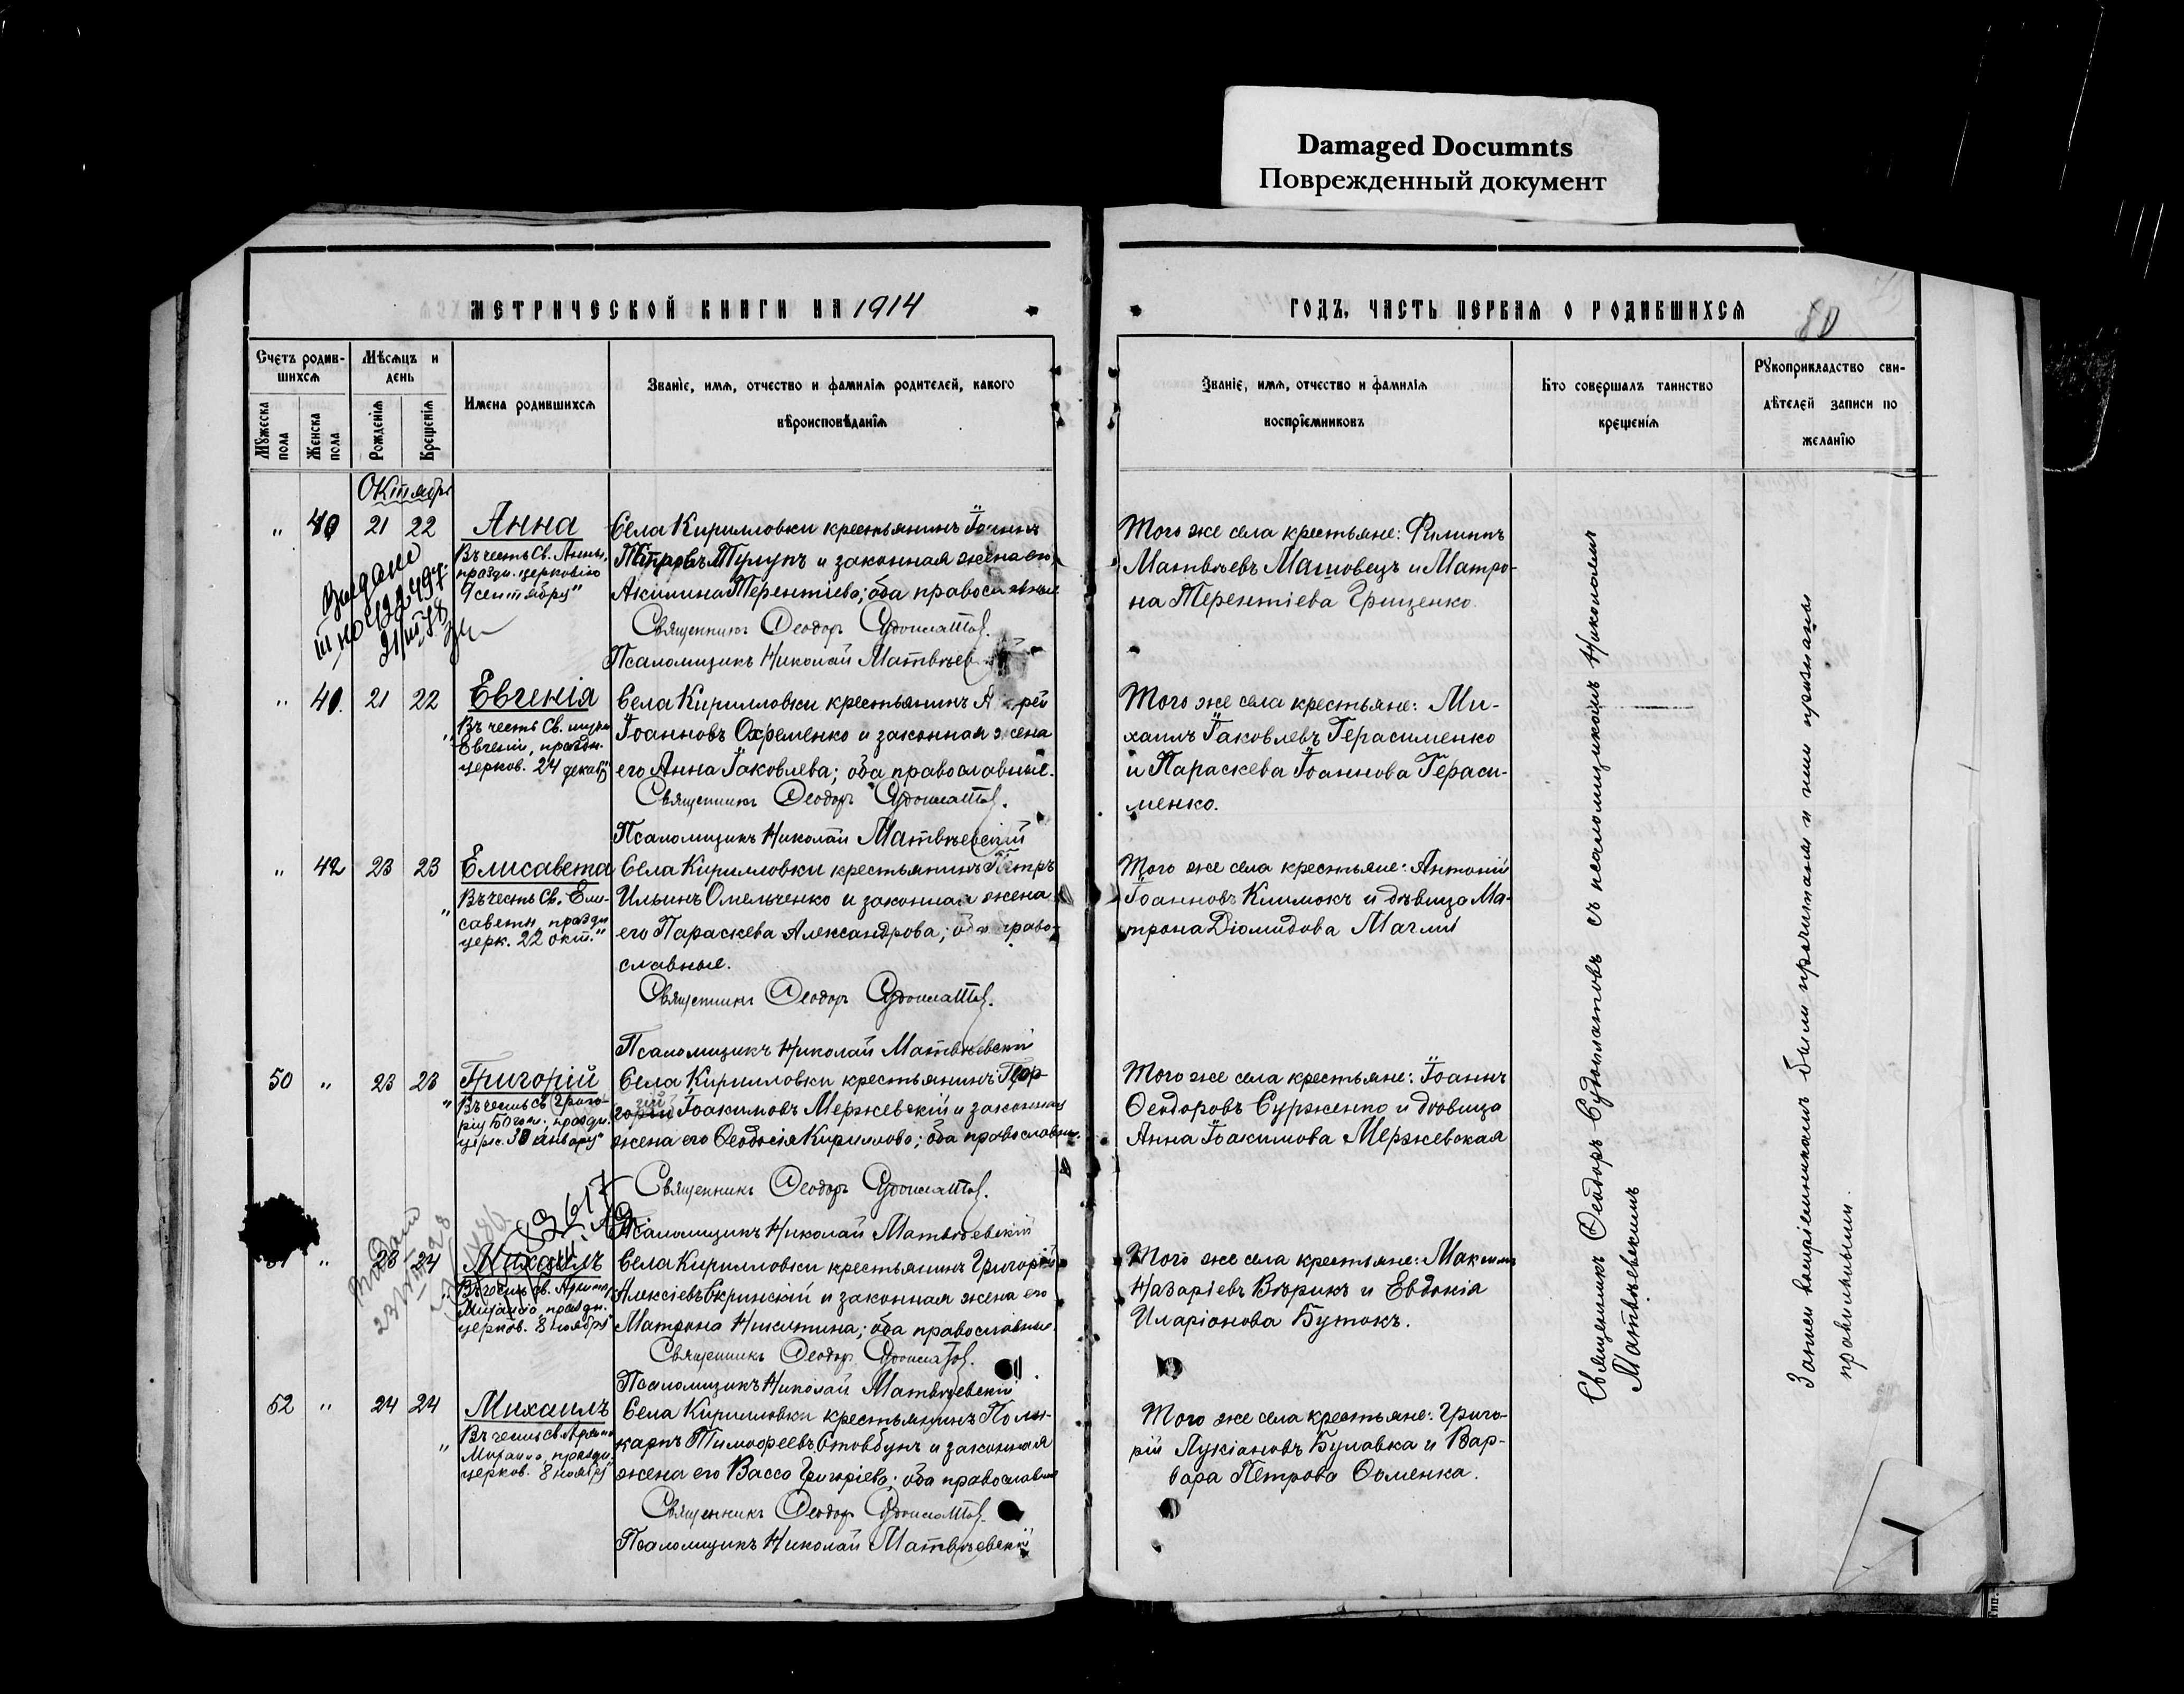 Damaged Documnts
Поврежденный документ
МЕТРИЧЕСКОЙ КНИГИ НА 1914
ГОДЪ, ЧАСТЬ ПЕРВАЯ О РОДИВШИХСЯ
80
Счетъ родив-
шихся
Мѣсяцъ и
день
Мужеска
пола
Женска
пола
Рожденія
Крещенія
Имена родившихся
Званіе, имя, отчество и фамилія родителей, какого
вѣроисповѣданія
Званіе, имя, отчество и фамилія
воспріемниковъ
Кто совершалъ таинство
крещенія
Рукоприкладство сви-
дѣтелей записи по
желанію
Октябрь
" 40 21 22 Анна
Въ честь Св. Анны,
праздн. церковію
9 сентября"
Села Кирилловки крестьянинъ Іоаннъ
Петровъ Тулупъ и законная жена его
Акилина Терентіева; оба православные
Священникъ Ѳеодоръ
Псаломщикъ Николай Матвѣев
Того же села крестьяне: Филиппъ
Матвѣевъ Машовецъ и Матро-
на Терентіева Грищенко.
Видано
" 41. 21 22 Евгенія
"Въ честь Св. муч.
Евгеніи, праздн.
церков. 24 декаб."
Села Кирилловки крестьянинъ А рей
Іоанновъ Охременко и законная жена
его Анна Іаковлева; оба православные.
Священникъ Ѳеодоръ
Псаломщикъ Николай Матвѣевскій
Того же села крестьяне: Ми-
хаилъ Іаковлевъ Герасименко
и Параскева Іоаннова Гераси-
менко.
" 42 23 23 Елисавета
"Въ честь Св. Ели-
саветы, праздн
церк. 22 окт."
Села Кирилловки крестьянинъ Петръ
Ильинъ Омельченко и законная жена
его Параскева Александрова; оба право-
славные.
Священникъ Ѳеодоръ
Псаломщикъ Николай Матвѣевскій
Того же села крестьяне: Антоній
Іоанновъ Климокъ и дѣвица Ма-
трона Діомидова
50 " 23 23 Григорій
"Въ честь св Григо-
рія Богосл. праздн.
церк. 30 января"
Села Кирилловки крестьянинъ Геор-
гій Іоакимовъ Мержевскій и законная
жена его Ѳеодосія Кириллова; оба православные.
Священникъ Ѳеодоръ
Псаломщикъ Николай Матвѣевскій
Того же села крестьяне: Іоаннъ
Ѳеодоровъ Сурженко и дѣвица
Анна Іоакимова Мержевская
" 23 24 Михаилъ
"Въ честь св. Архист.
Михаила, праздн.
церков. 8 ноября"
Села Кирилловки крестьянинъ Григорій
Алексіевъ Скринскій и законная жена его
Матрона Никитина; оба православные.
Священникъ Ѳеодоръ
Псаломщикъ Николай Матвѣевскій
Того же села крестьяне: Максимъ
Назаріевъ Вѣрикъ и Евдокія
Иларіонова Бутокъ.
52 " 24 24 Михаилъ
"Въ честь св. Архист.
Михаила, праздн.
церков. 8 ноября"
Села Кирилловки крестьянинъ Поли-
карпъ Тимоѳеевъ Стовбунъ и законная
жена его Васса Григоріева; оба православные
Священникъ Ѳеодоръ
Псаломщикъ Николай Матвѣевскій
Того же села крестьяне: Григо-
рій Лукіановъ Булавка и Вар-
вара Петрова
Священникъ Ѳеодоръ съ псаломщикомъ Николаемъ
Матвѣевскимъ
Записи воспріемникамъ были прочитаны и ими признаны
правильными.